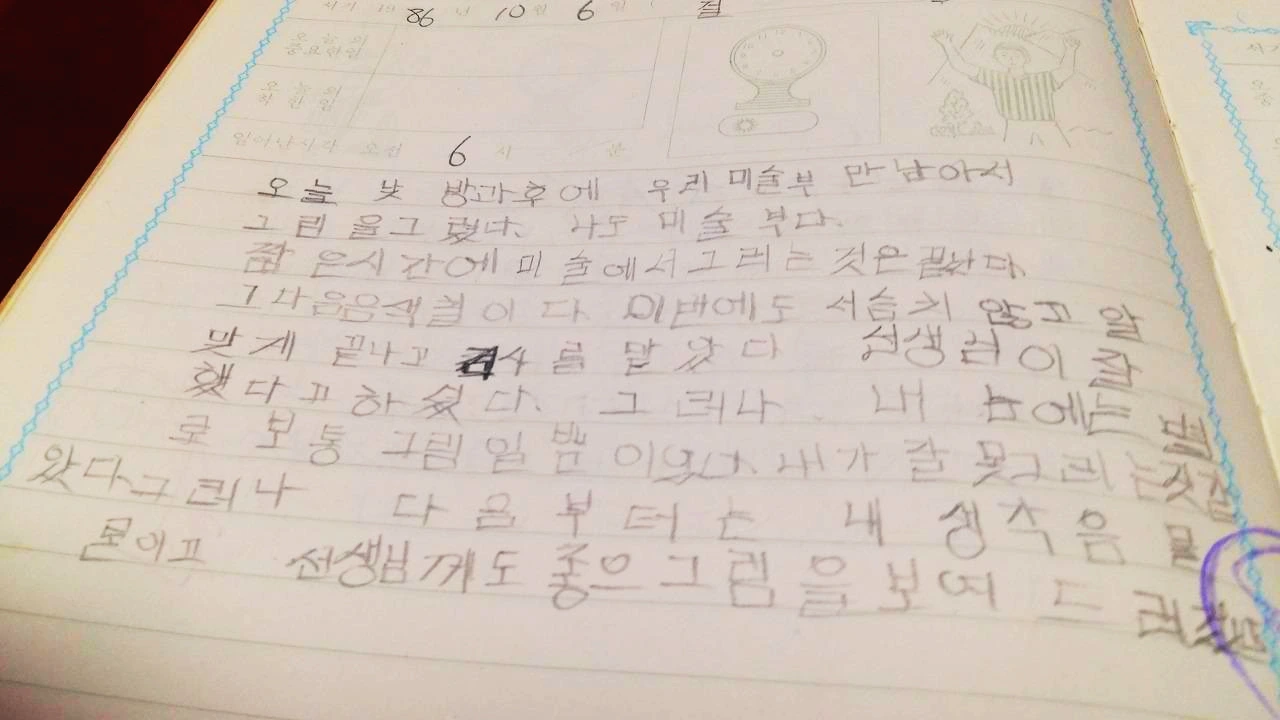 서기 19 86 년 10 월 6 일
오늘의
중요한일
오늘의
착한일
일어난시각 오전 6 시 분
오늘 낮 방과후에 우리 미술부 만 남아서
그림 을그 렸다. 나도 미술 부다.
짧 은시 간에 미 술에서그리는 것은 끝났다
그다음은색칠 이 다 이번에도 서슴치 않고 알
맞게 끝나고 를 맡 았 다 선생님 이 잘
했다고하셨다. 그 러나 내 눈에는
로 보통 그림 일 뿐 이었다 내가 잘 못그리는것같
았다그러나 다음부터는 내 생각음
선생님께도 좋은그림을 보여 드